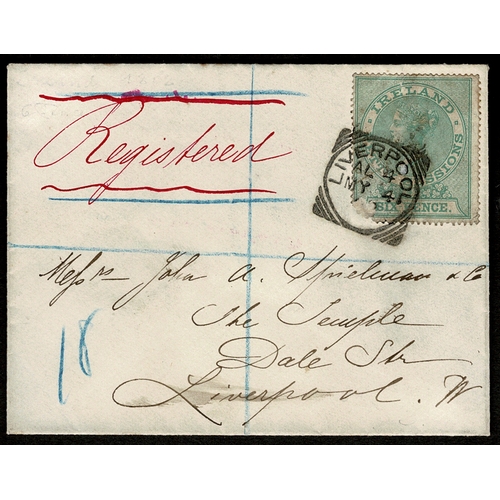 Registered
IRELAND
SIXPENCE.
LIVERPOOL
MY 4
Messrs John A. Spielman & Co
The Temple
Dale Str
Liverpool. W
18